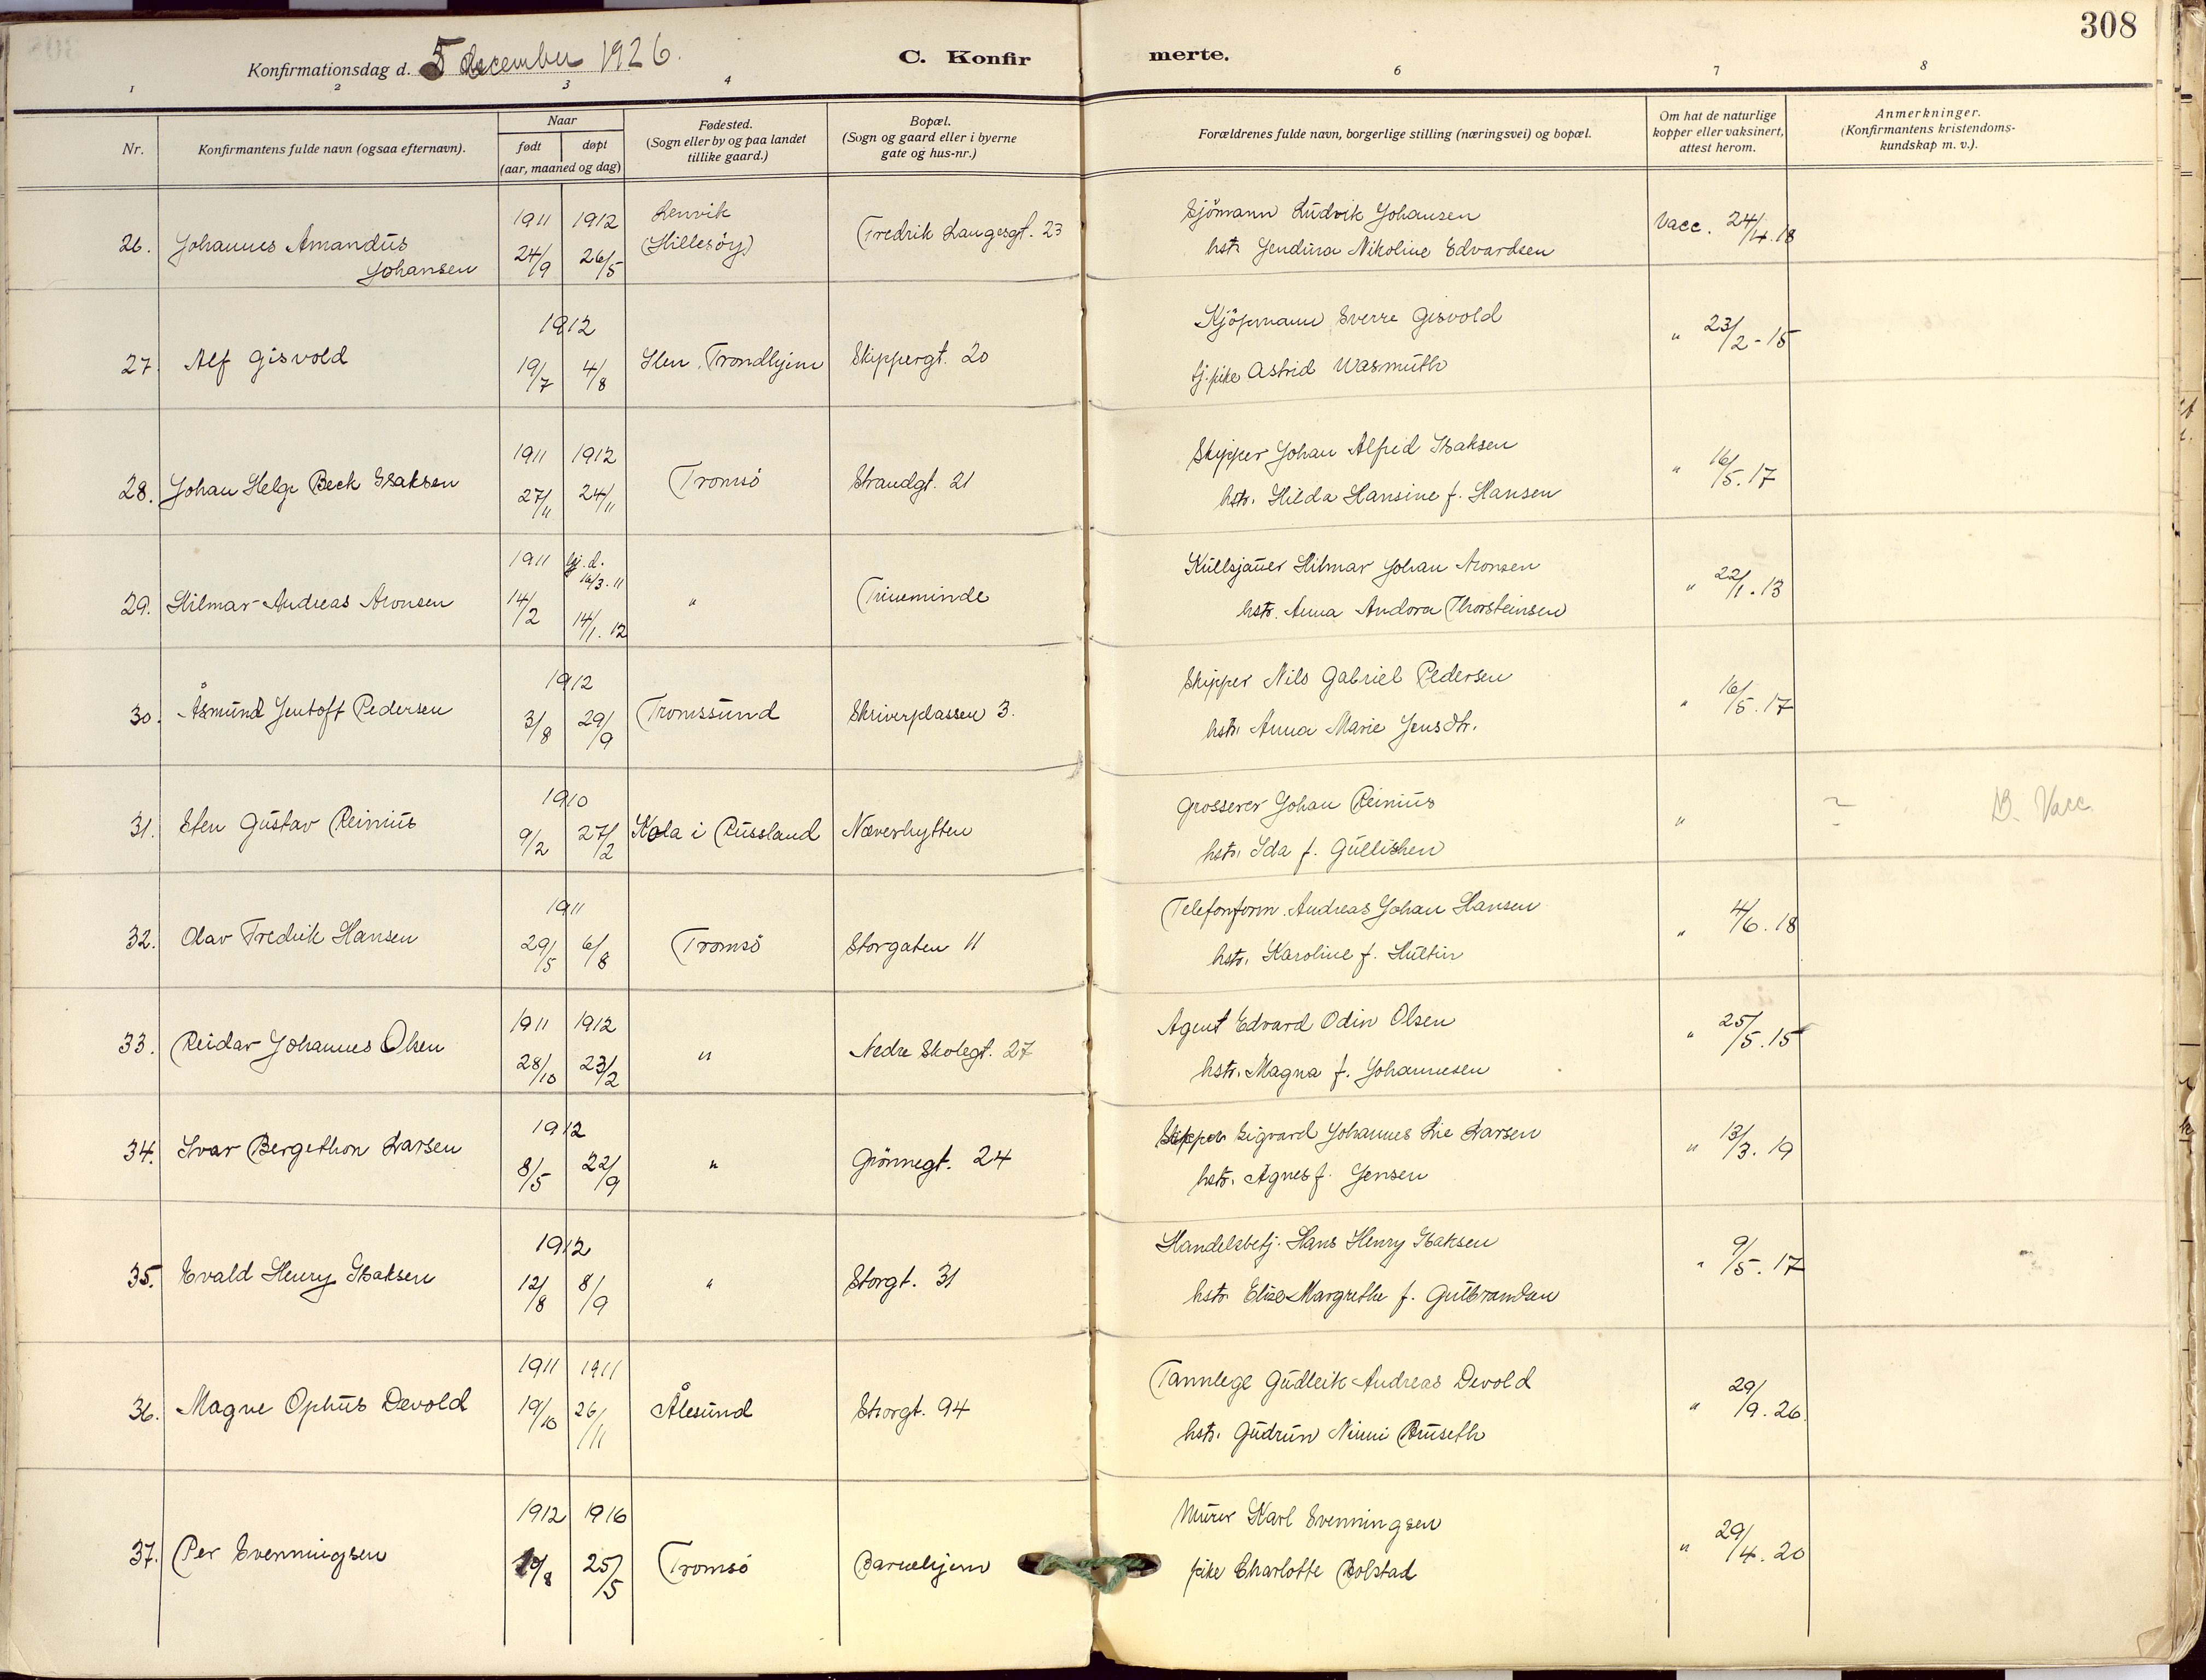 308
Konfirmationsdag d. 5 december 1926.
C. Konfirmerte.
1 2 3 4 6 7 8
Nr.
Konfirmantens fulde navn (ogsaa efternavn).
Naar
født døpt
(aar, maaned og dag)
Fødested.
(Sogn eller by og paa landet
tillike gaard.)
Bopæl.
(Sogn og gaard eller i byerne
gate og hus-nr.)
Forældrenes fulde navn, borgerlige stilling (næringsvei) og bopæl.
Om hat de naturlige
kopper eller vaksinert,
attest herom.
Anmerkninger.
(Konfirmantens kristendoms-
kundskap m. v.).
1911 1912 Lenvik Sjömann Ludvik Johansen
26. Johannes Amandus 24/9 26/5 (Hillesöy) Fredrik Langesgt. 23 hstr. Jendina Nikoline Edvardsen Vacc. 24/4.18
Johansen
1912 Kjöpmann Sverre Gisvold
27. Alf Gisvold 19/7 4/8 Ilen, Trondhjem Skippergt. 20 tj.pike Astrid Wasmuth " 23/2-15
1911 1912 Skipper Johan Alfred Isaksen
28. Johan Helge Beck Isaksen 27/11 24/11 Tromsö Strandgt. 21 hstr. Hilda Hansine f. Hansen " 16/5.17
1911 hj.d. 16/3.11 Kullsjauer Hilmar Johan Aronsen
29. Hilmar Andreas Aronsen 14/2 14/1.12 " Trineminde hstr. Anna Andora Thorsteinsen " 22/1.13
1912 Skipper Nils Gabriel Pedersen
30. Åsmund Jentoft Pedersen 3/8 29/9 Tromssund Skriverplassen 3. hstr. Anna Marie Jensdtr. " 16/5.17
1910 Grosserer Johan Reinius
31. Sten Gustav Reinius 9/2 27/2 Kola i Russland Næverhytten hstr. Ida f. Gullishen " ? B. Vacc.
1911 Telefonform. Andreas Johan Hansen
32. Olav Fredrik Hansen 29/5 6/8 Tromsö Storgaten 11 hstr. Karoline f. Hultin " 4/6.18
1911 1912 Agent Edvard Odin Olsen
33. Reidar Johannes Olsen 28/10 23/2 " Nedre Skolegt. 27 hstr. Magna f. Johannesen " 25/5.15
1912 Skipper Sigvard Johannes Lie Larsen
34. Ivar Bergethon Larsen 8/5 22/9 " Grönnegt. 24 hstr. Agnes f. Jensen " 13/3.19
1912 Handelsbetj. Hans Henry Isaksen
35. Evald Henry Isaksen 12/8 8/9 " Storgt. 31 hstr. Elise Margrethe f. Gulbrandsen " 9/5.17
1911 1911 Tannlege Gudleik Andreas Devold
36. Magne Ophus Devold 19/10 26/11 Ålesund Storgt. 94 hstr. Gudrun Ninni Bruseth " 29/9.26.
1912 1916 Murer Karl Evenningsen
37. Per Evenningsen /8 25/5 Tromsö Barnehjem pike Charlotte Bolstad " 29/4.20